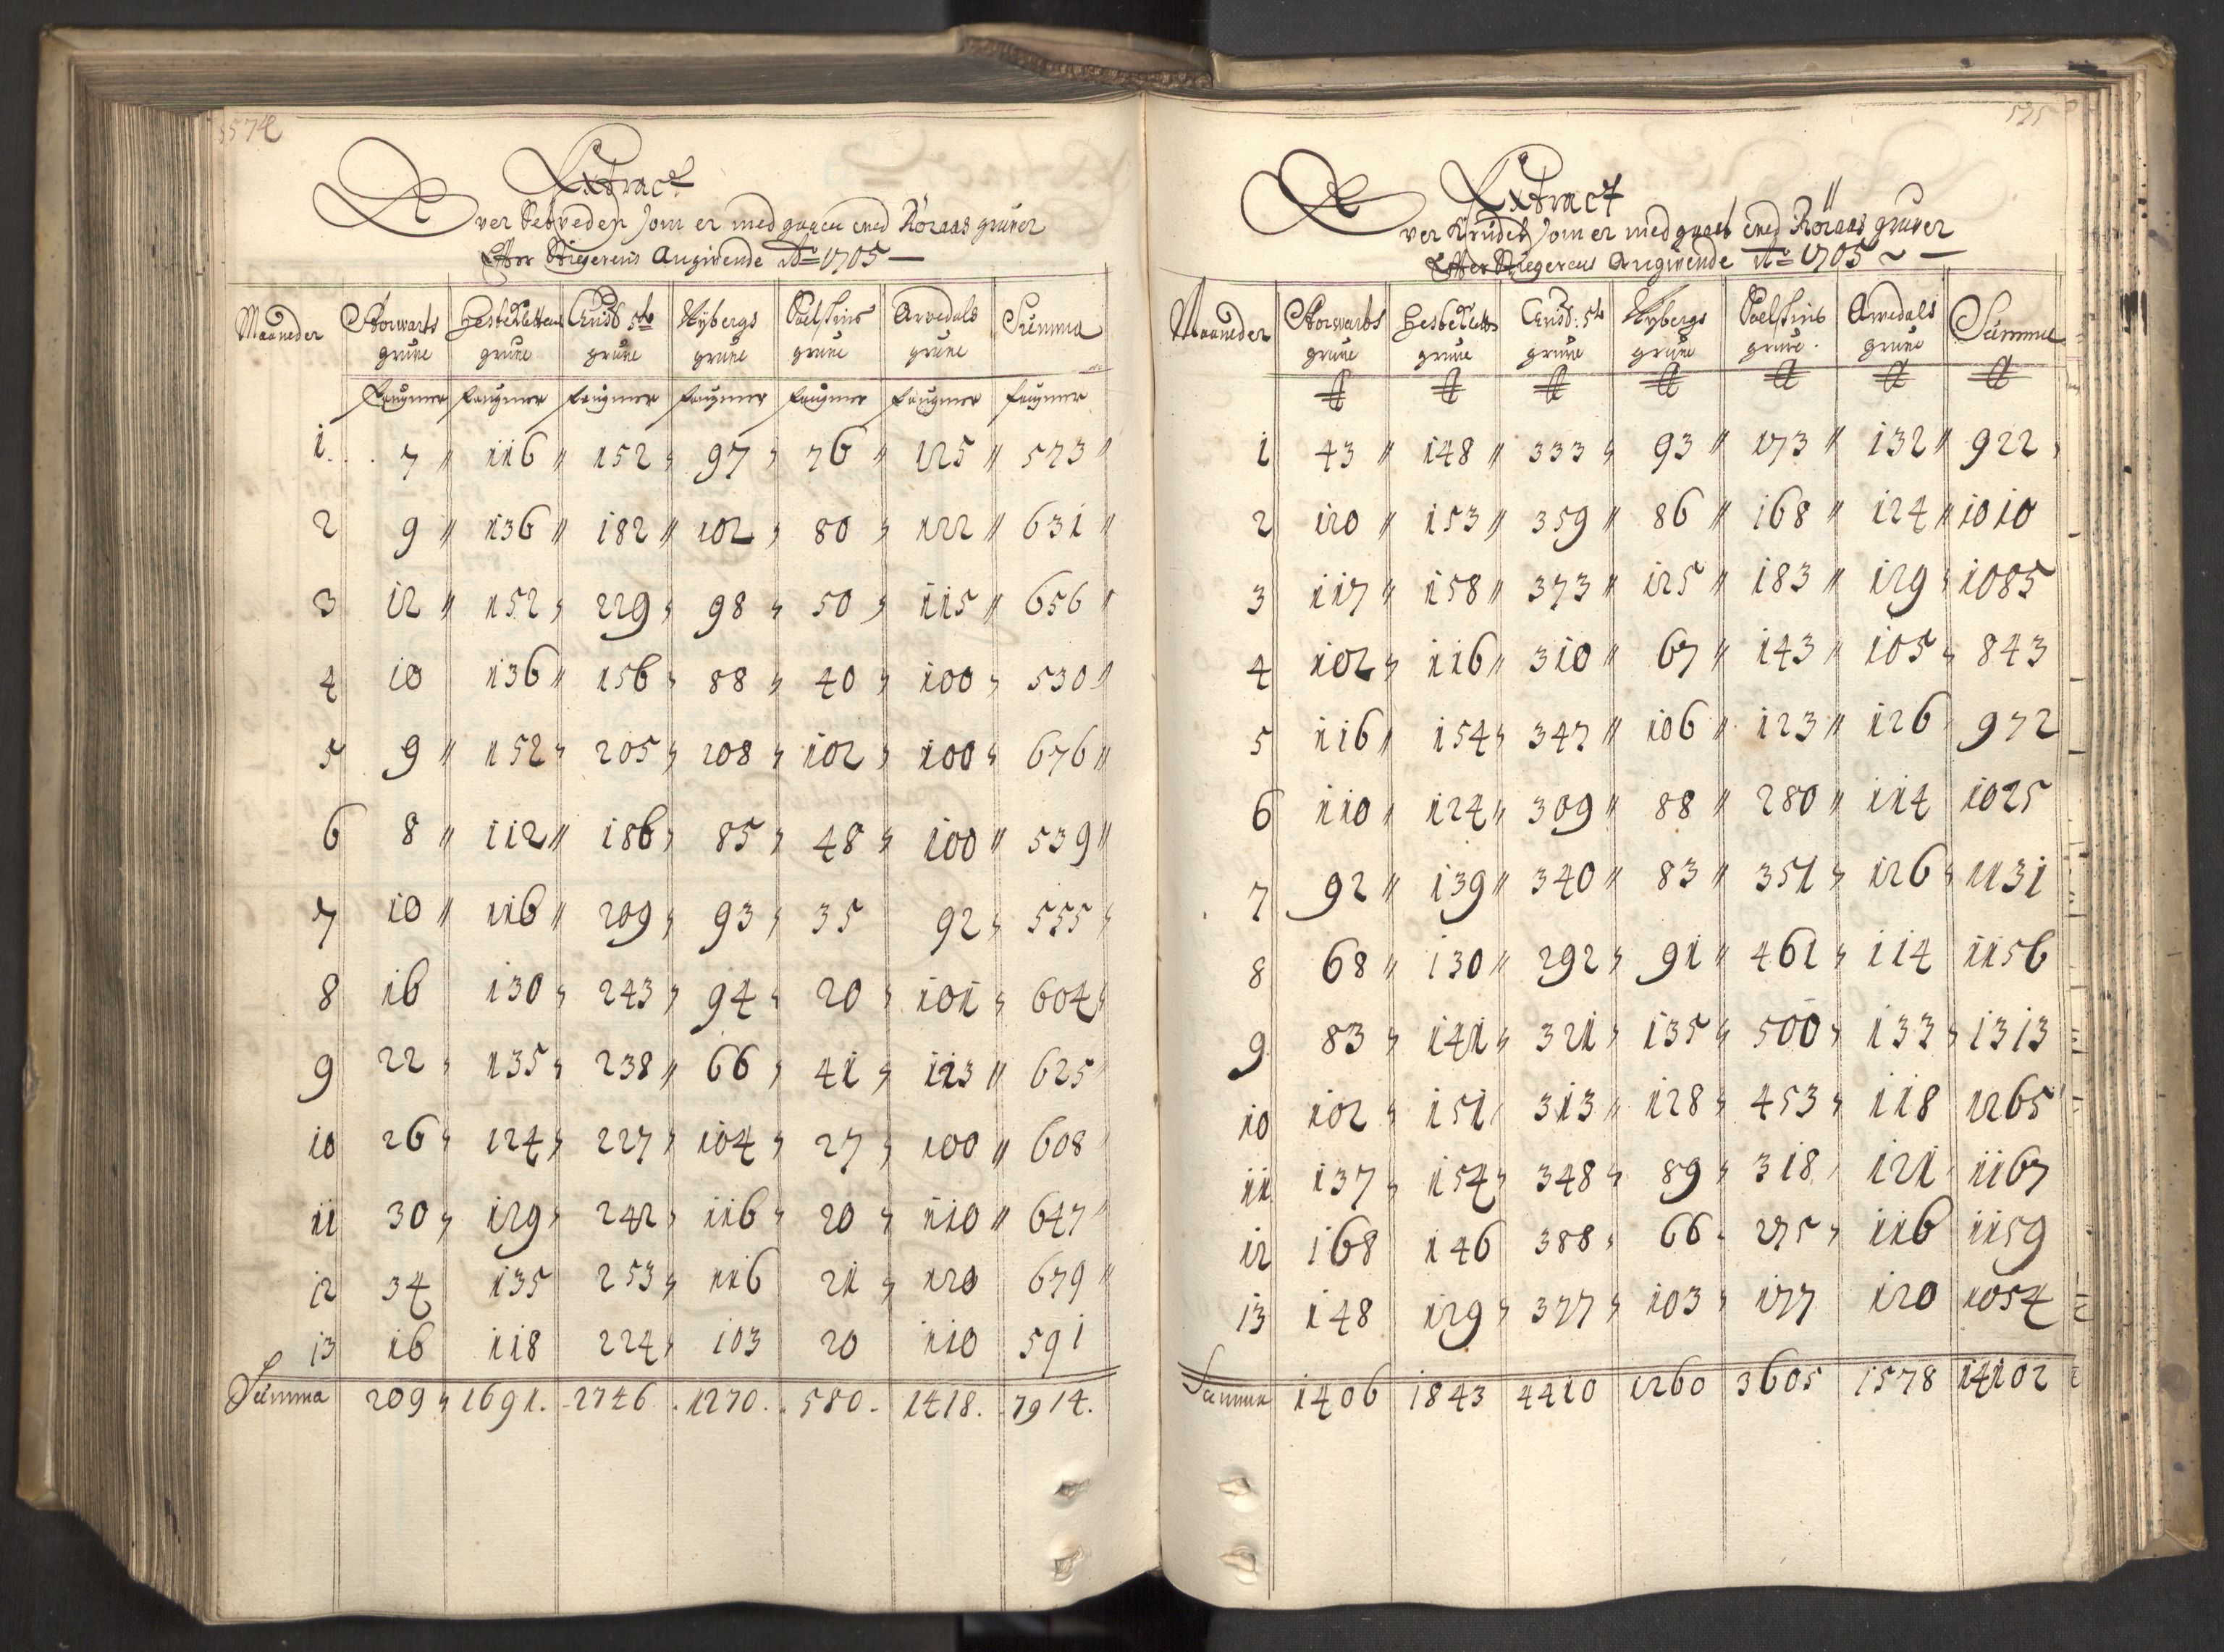 574
Extract
Over Setveden som er medgaaen ved Röraas gruver
Efter Stigerens Angivende Ao 1705 —
Maaneder Storwarts grune Hestkletten grune Christ: 5te grune Nÿbergs grune Soelskins grune Arvedals grune Summa
faugner faugner faugner faugner faugner faugner faugner
1 7 " 116 " 152 " 97 " 76 " 125 " 573 "
2 9 " 136 " 182 " 102 " 80 " 122 " 631 "
3 12 " 152 " 229 " 98 " 50 " 115 " 656 "
4 10 136 " 156 " 88 " 40 " 100 " 530 "
5 9 " 152 " 205 " 108 " 102 " 100 " 676 "
6 8 " 112 " 186 " 85 " 48 " 100 " 539 "
7 10 " 116 " 209 " 93 " 35 92 " 555 "
8 16 130 " 243 " 94 " 20 " 101 " 604 "
9 22 " 135 " 238 " 66 " 41 " 123 " 625 "
10 26 " 124 " 227 " 104 " 27 " 100 " 608 "
11 30 " 129 " 242 " 116 " 20 " 110 " 647 "
12 34 135 253 " 116 21 " 120 679 "
13 16 118 224 " 103 20 110 591
Summa 209 " 1691. 2746. 1270. 580. 1418. 7914.
575
Extract
Over Krudet som er medgaaet ved Röraas gruver
Efter Stigerens Angivende Ao 1705 ~ —
Maaneder Storwarts grune Hestkletten grune Christ: 5te grune Nÿbergs grune Soelskins grune Arvedals grune Summa
℔ ℔ ℔ ℔ ℔ ℔ ℔
1 43 " 148 " 333 " 93 " 173 " 132 " 922 "
2 120 " 153 " 359 " 86 " 168 " 124 " 1010
3 117 " 158 " 373 " 125 " 183 " 129 " 1085
4 102 " 116 " 310 " 67 " 143 " 105 " 843
5 116 " 154 " 347 " 106 " 123 " 126 " 972
6 110 " 124 " 309 " 88 " 280 " 114 1025
7 92 " 139 " 340 " 83 " 351 " 126 " 1131
8 68 " 130 " 292 " 91 " 461 " 114 1156
9 83 " 141 " 321 " 135 " 500 " 133 " 1313
10 102 " 151 " 313 " 128 " 453 " 118 1265
11 137 " 154 " 348 " 89 " 318 " 121 " 1167
12 168 146 388 " 66 " 275 " 116 1159
13 148 129 " 377 " 103 " 177 120 1054
Summa 1406 1843 4410 1260 3605 1578 14102